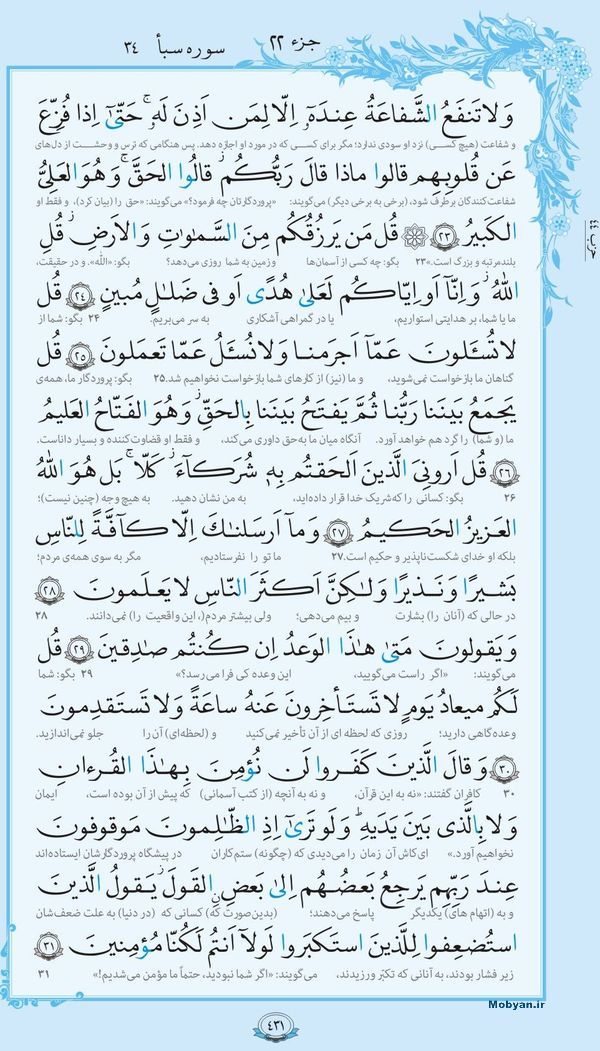 جزء ۲۲
سوره سبأ ۳۴
وَلا تَنفَعُ الشَّفاعَةُ عِندَهُ إِلّا لِمَن أَذِنَ لَهُ ۚ حَتّىٰ إِذا فُزِّعَ
و شفاعت (هیچ کسی) نزد او سودی ندارد؛ مگر برای کسی که در مورد او اجازه دهد. پس هنگامی که ترس و وحشت از دل‌های
عَن قُلوبِهِم قالوا ماذا قالَ رَبُّكُم ۖ قالُوا الحَقَّ ۖ وَهُوَ العَلِيُّ
شفاعت‌کنندگان برطرف شود، (برخی به برخی دیگر) می‌گویند: «پروردگارتان چه فرمود؟» می‌گویند: «حق را (بیان کرد)، و فقط او
الكَبيرُ ﴿۲۳﴾ ۞ قُل مَن يَرزُقُكُم مِنَ السَّماواتِ وَالأَرضِ ۖ قُلِ
بلندمرتبه و بزرگ است.» ۲۳ بگو: چه کسی از آسمان‌ها و زمین به شما روزی می‌دهد؟ بگو: «الله». و در حقیقت،
حزب ۴۴
اللَّهُ ۖ وَإِنّا أَو إِيّاكُم لَعَلىٰ هُدًى أَو في ضَلالٍ مُبينٍ ﴿۲۴﴾ قُل
ما یا شما، بر هدایتی استواریم، یا در گمراهی آشکاری به سر می‌بریم. ۲۴ بگو: شما از
لا تُسأَلونَ عَمّا أَجرَمنا وَلا نُسأَلُ عَمّا تَعمَلونَ ﴿۲۵﴾ قُل
گناهان ما بازخواست نمی‌شوید، و ما (نیز) از کارهای شما بازخواست نخواهیم شد. ۲۵ بگو: پروردگار ما، همه‌ی
يَجمَعُ بَينَنا رَبُّنا ثُمَّ يَفتَحُ بَينَنا بِالحَقِّ وَهُوَ الفَتّاحُ العَليمُ
ما (و شما) را گرد هم خواهد آورد. آنگاه میان ما به‌حق داوری می‌کند، و فقط او قضاوت‌کننده و بسیار داناست.
﴿۲۶﴾ قُل أَرونِيَ الَّذينَ أَلحَقتُم بِهِ شُرَكاءَ ۖ كَلّا ۚ بَل هُوَ اللَّهُ
۲۶ بگو: کسانی را که شریک خدا قرار داده‌اید، به من نشان دهید. به هیچ وجه (چنین نیست)؛
العَزيزُ الحَكيمُ ﴿۲۷﴾ وَما أَرسَلناكَ إِلّا كافَّةً لِلنّاسِ
بلکه او خدای شکست‌ناپذیر و حکیم است. ۲۷ ما تو را نفرستادیم، مگر به سوی همه‌ی مردم؛
بَشيرًا وَنَذيرًا وَلٰكِنَّ أَكثَرَ النّاسِ لا يَعلَمونَ ﴿۲۸﴾
در حالی که (آنان را) بشارت و بیم می‌دهی؛ ولی بیشتر مردم(، این واقعیت را) نمی‌دانند. ۲۸
وَيَقولونَ مَتىٰ هٰذَا الوَعدُ إِن كُنتُم صادِقينَ ﴿۲۹﴾ قُل
می‌گویند: «اگر راست می‌گویید، این وعده کی فرا می‌رسد؟» ۲۹ بگو: شما
لَكُم ميعادُ يَومٍ لا تَستَأخِرونَ عَنهُ ساعَةً وَلا تَستَقدِمونَ
وعده‌گاهی دارید؛ روزی که لحظه ای از آن تأخیر نمی‌کنید و (لحظه‌ای) آن را جلو نمی‌اندازید.
﴿۳۰﴾ وَقالَ الَّذينَ كَفَروا لَن نُؤمِنَ بِهٰذَا القُرءانِ
۳۰ کافران گفتند: «نه به این قرآن، و نه به آنچه (از کتب آسمانی) که پیش از آن بوده است، ایمان
وَلا بِالَّذي بَينَ يَدَيهِ ۗ وَلَو تَرىٰ إِذِ الظّالِمونَ مَوقوفونَ
نخواهیم آورد.» ای‌کاش آن زمان را می‌دیدی که (چگونه) ستم‌کاران در پیشگاه پروردگارشان ایستاده‌اند
عِندَ رَبِّهِم يَرجِعُ بَعضُهُم إِلىٰ بَعضٍ القَولَ يَقولُ الَّذينَ
و به (اتهام های) یکدیگر پاسخ می‌دهند؛ (بدین‌صورت که) کسانی که (در دنیا) به علت ضعف‌شان
استُضعِفوا لِلَّذينَ استَكبَروا لَولا أَنتُم لَكُنّا مُؤمِنينَ ﴿۳۱﴾
زیر فشار بودند، به آنانی که تکبّر ورزیدند، می‌گویند: «اگر شما نبودید، حتماً ما مؤمن می‌شدیم!» ۳۱
Mobyan.ir
۴۳۱